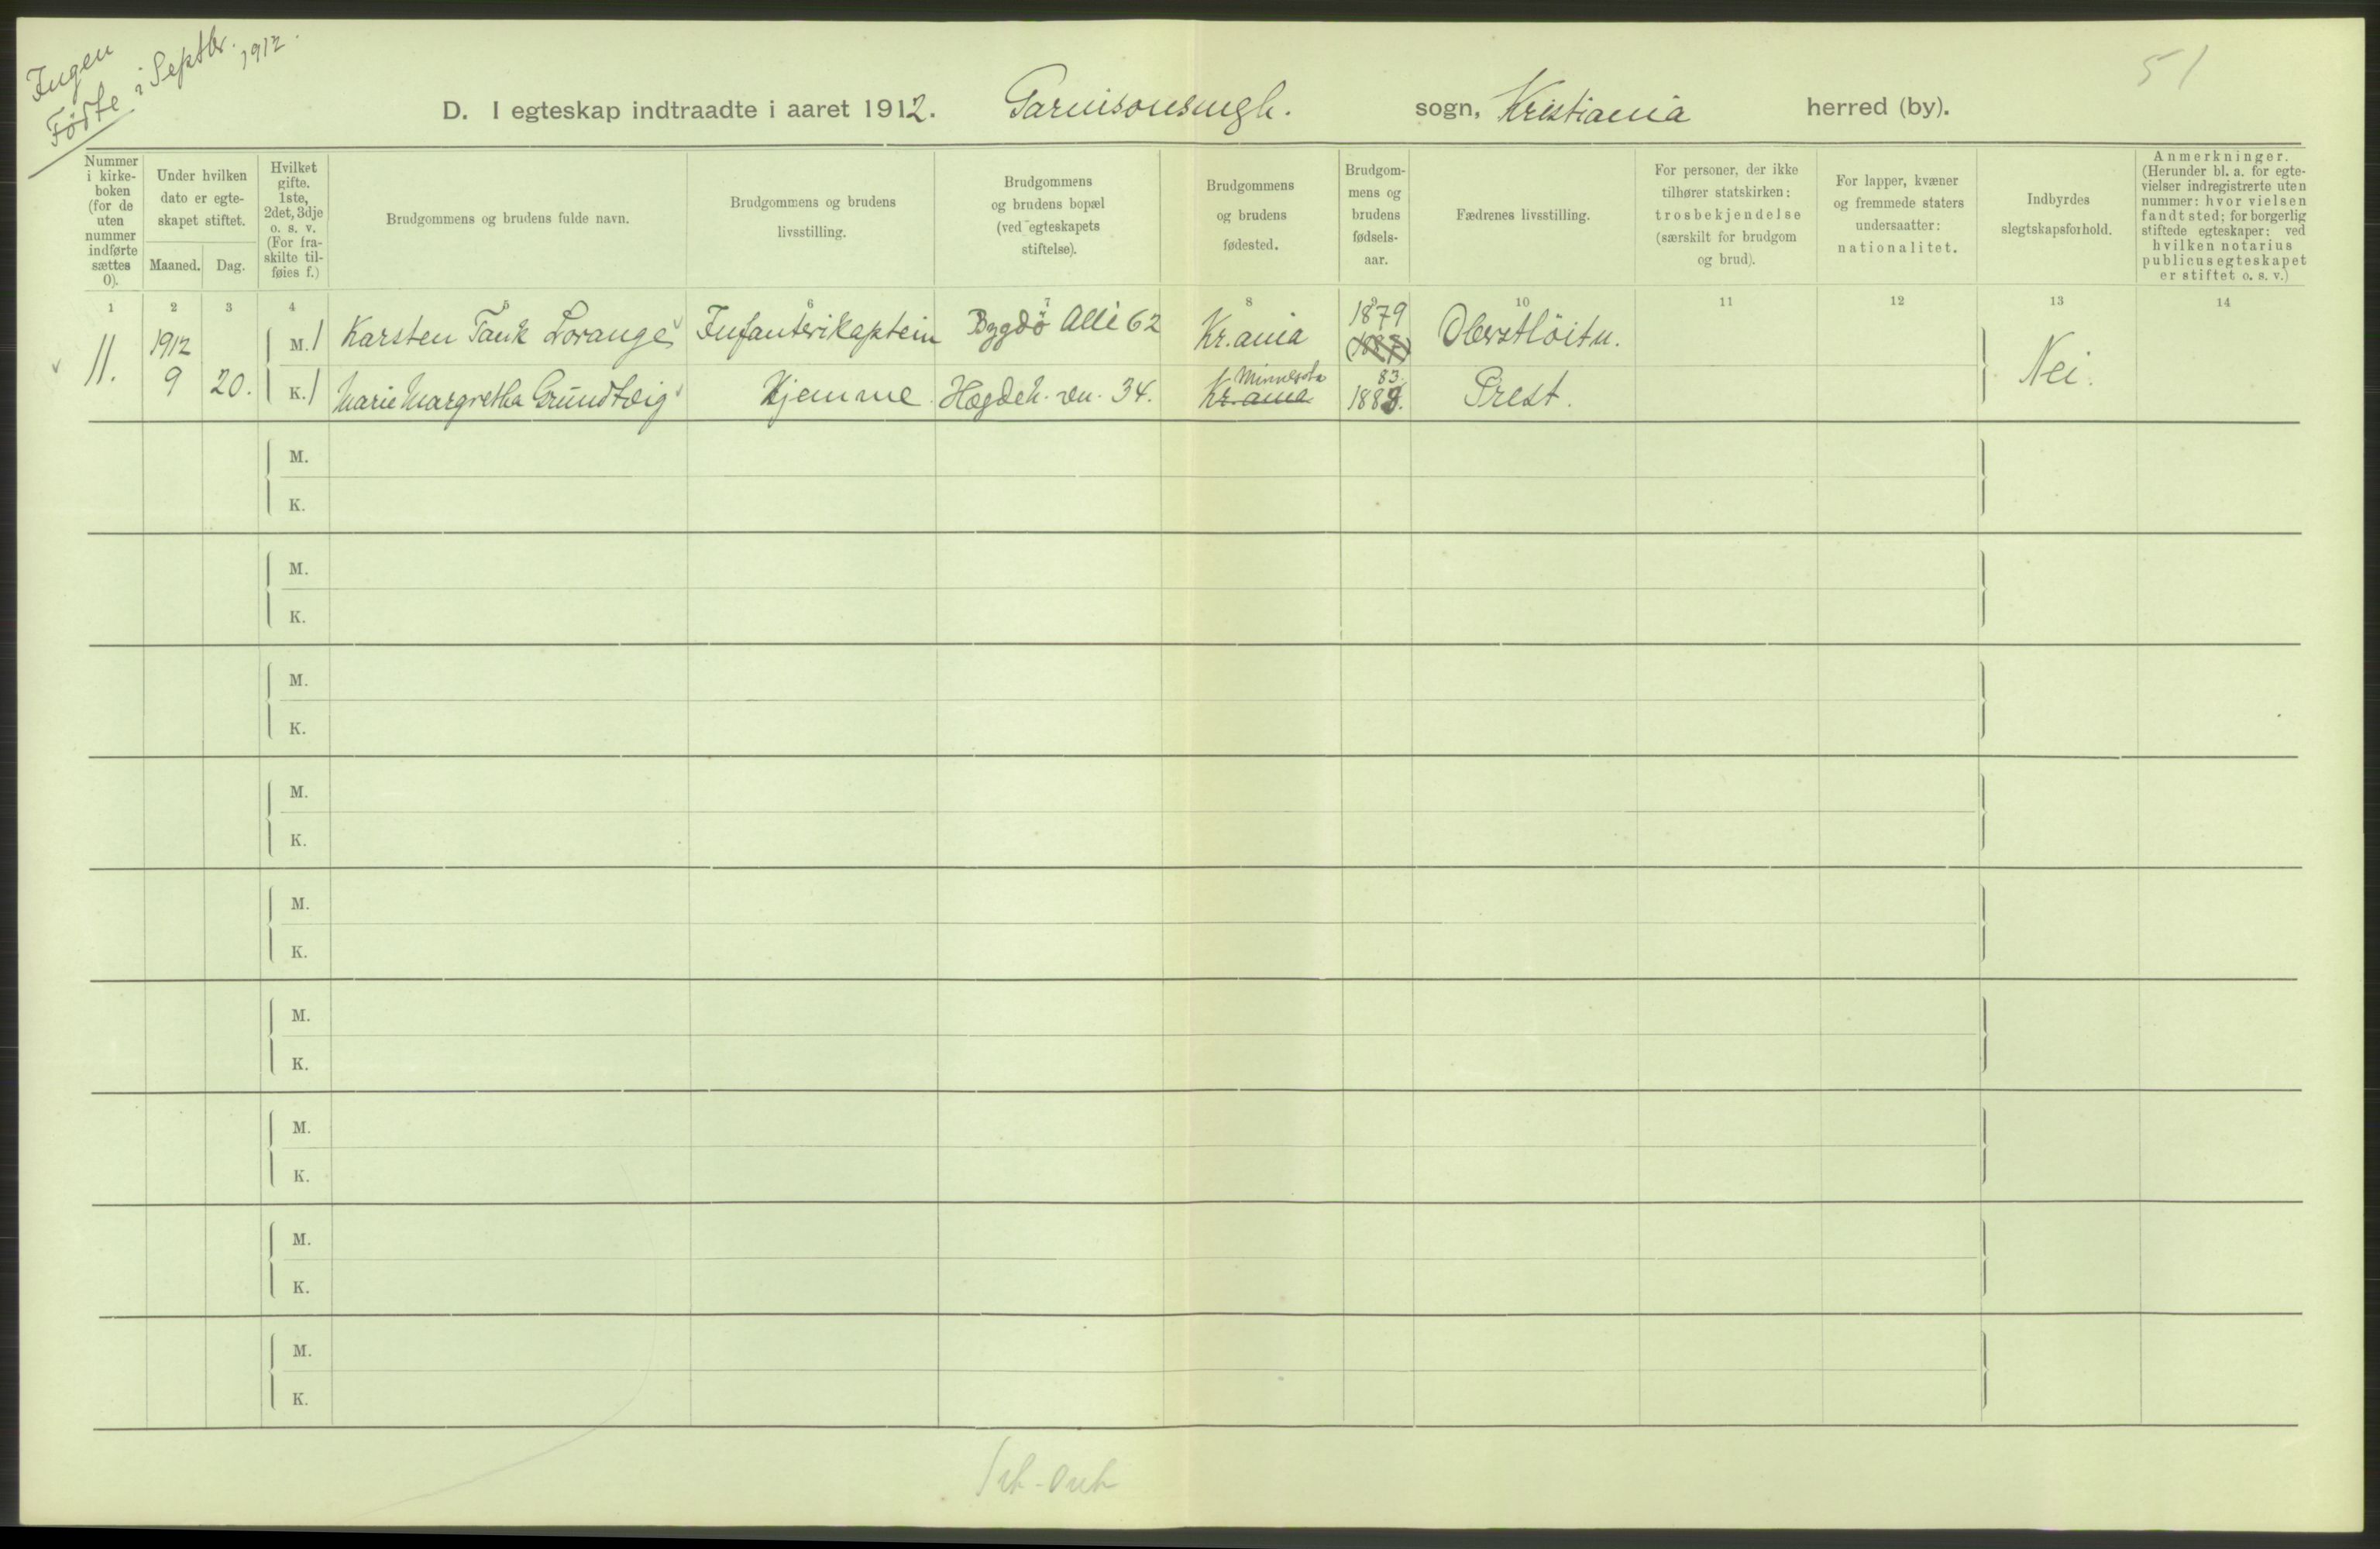 Ingen
Fødte i Septbr. 1912.
51
D. I egteskap indtraadte i aaret 1912. Garnisonsmgh. sogn, Kristiania herred (by).
Nummer
i kirke-
boken
(for de
uten
nummer
indførte
sættes
0).
Under hvilken
dato er egte-
skapet stiftet.
Maaned. Dag.
Hvilket
gifte.
1ste,
2det, 3dje
o. s. v.
(For fra-
skilte til-
føies f.)
Brudgommens og brudens fulde navn.
Brudgommens og brudens
livsstilling.
Brudgommens
og brudens bopæl
(ved egteskapets
stiftelse).
Brudgommens
og brudens
fødested.
Brudgom-
mens og
brudens
fødsels-
aar.
Fædrenes livsstilling.
For personer, der ikke
tilhører statskirken:
trosbekjendelse
(særskilt for brudgom
og brud).
For lapper, kvæner
og fremmede staters
undersaatter:
nationalitet.
Indbyrdes
slegtskapsforhold.
Anmerkninger.
(Herunder bl. a. for egte-
vielser indregistrerte uten
nummer: hvor vielsen
fandt sted; for borgerlig
stiftede egteskaper: ved
hvilken notarius
publicus egteskapet
er stiftet o. s. v.)
1 2 3 4 5 6 7 8 9 10 11 12 13 14
11. 1912 M. 1 Karsten Tank Lorange Infanterikaptein Bygdö Allé 62 Kr.ania 1879 Oberstlöitn. Nei.
9 20. K. 1 Marie Margretha Grundtvig Hjemme. Hægdeh. vn. 34. Minnesota Kr.ania 83. 1883. Prest.
M.
K.
M.
K.
M.
K.
M.
K.
M.
K.
M.
K.
M.
K.
M.
K.
M.
K.